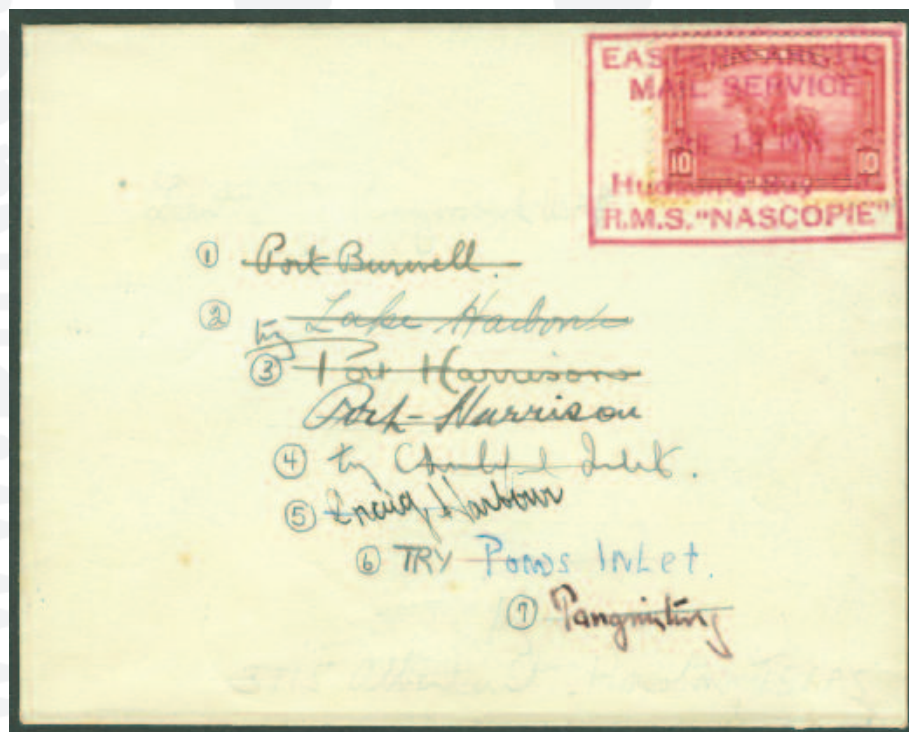 EASTERN ARCTIC
MAIL SERVICE
10 10
Hudson's Bay
R.M.S. "NASCOPIE"
① Port Burwell.
② Lake Harbour
try
③ Port Harrison
Port-Harrison
④ try Inlet.
⑤ Craig Harbour
⑥ TRY PONDS INLET.
⑦ Pangnirtung